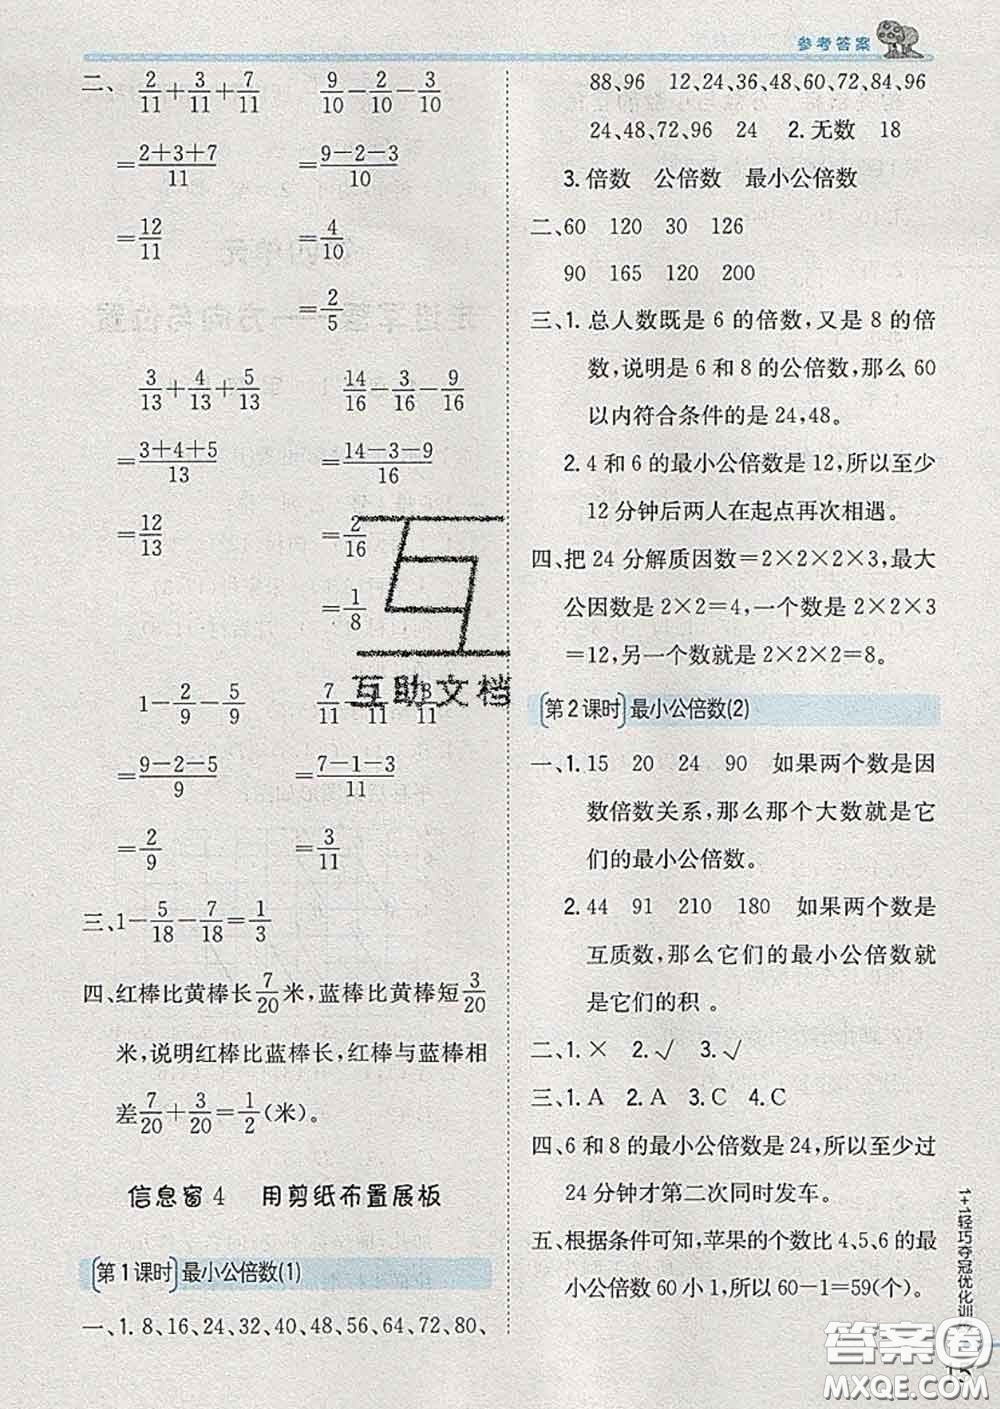 参考答案
二、2/11+3/11+7/11　9/10−2/10−3/10
=(2+3+7)/11　=(9−2−3)/10
=12/11　=4/10
=2/5
3/13+4/13+5/13　14/16−3/16−9/16
=(3+4+5)/13　=(14−3−9)/16
=12/13　=2/16
=1/8
1−2/9−5/9　7/11−1/11−3/11
=(9−2−5)/9　=(7−1−3)/11
=2/9　=3/11
三、1−5/18−7/18=1/3
四、红棒比黄棒长7/20米,蓝棒比黄棒短3/20
米,说明红棒比蓝棒长,红棒与蓝棒相
差7/20+3/20=1/2(米)。
信息窗4　用剪纸布置展板
第1课时 最小公倍数(1)
一、1. 8、16、24、32、40、48、56、64、72、80、
88、96　12、24、36、48、60、72、84、96
24、48、72、96　24　2. 无数　18
3. 倍数　公倍数　最小公倍数
二、60　120　30　126
90　165　120　200
三、1. 总人数既是 6 的倍数,又是 8 的倍
数,说明是 6 和 8 的公倍数,那么 60
以内符合条件的是 24,48。
2. 4 和 6 的最小公倍数是 12,所以至少
12 分钟后两人在起点再次相遇。
四、把 24 分解质因数=2×2×2×3,最大
公因数是 2×2=4,一个数是 2×2×3
=12,另一个数就是 2×2×2=8。
第2课时 最小公倍数(2)
一、1. 15　20　24　90　如果两个数是因
数倍数关系,那么那个大数就是它
们的最小公倍数。
2. 44　91　210　180　如果两个数是
互质数,那么它们的最小公倍数就
是它们的积 。
二、1. ×　2. √　3. √
三、1. A　2. A　3. C　4. C
四、6 和 8 的最小公倍数是 24,所以至少过
24 分钟才第二次同时发车。
五、根据条件可知,苹果的个数比 4、5、6 的最
小公倍数 60 小 1,所以 60−1=59(个)。
1+1轻巧夺冠优化训练
15
互助文档
答案圈
MXQE.COM